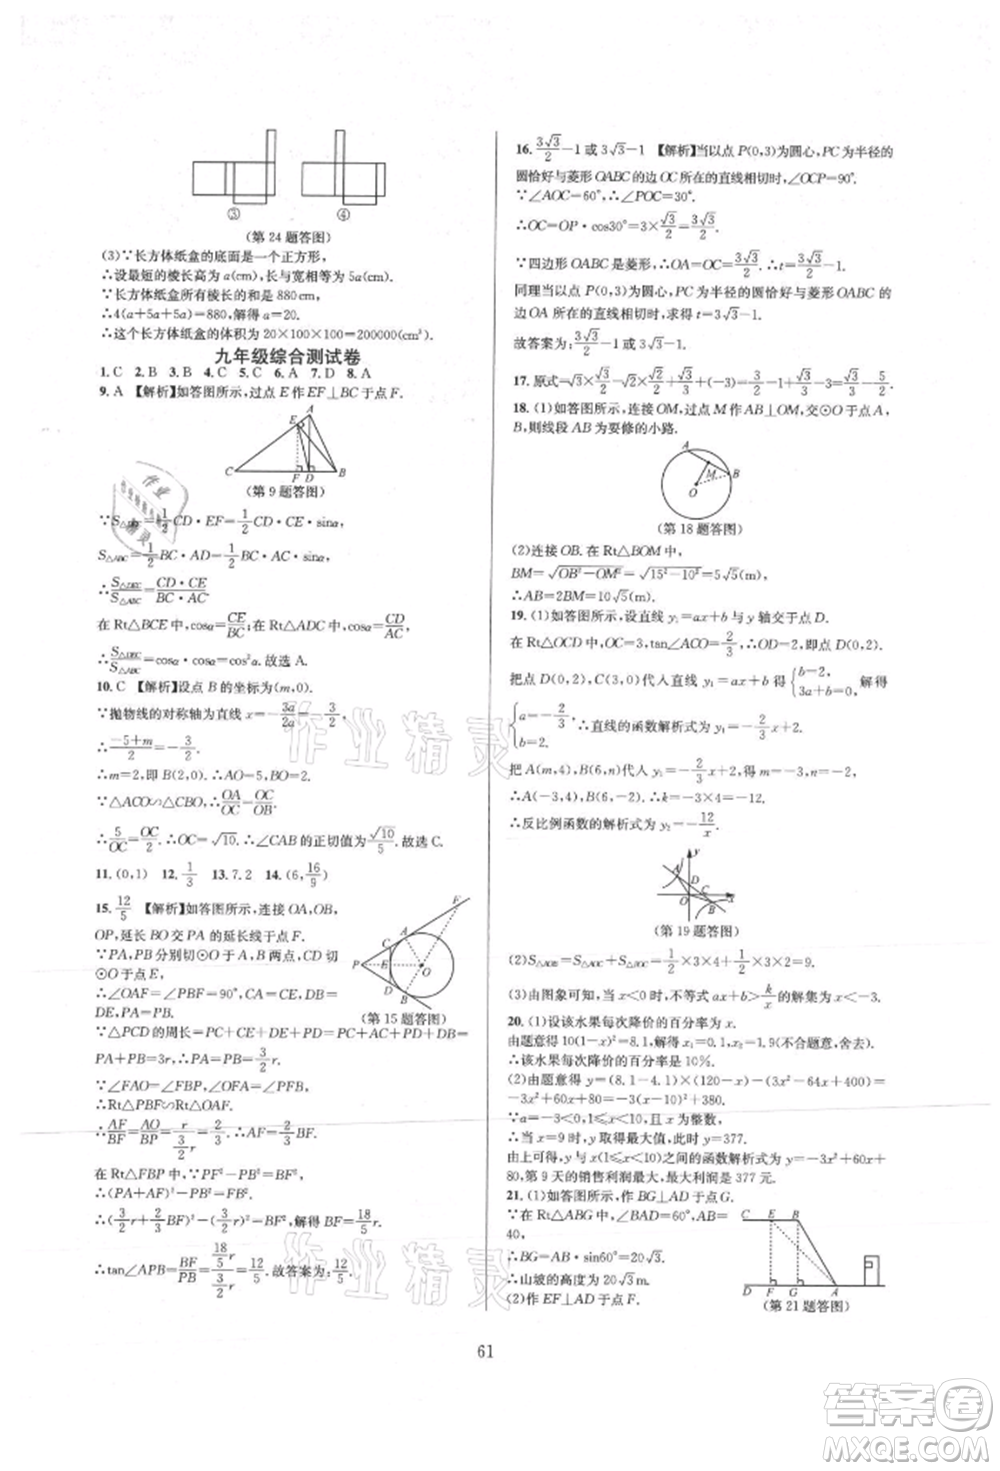 ③ ④
(第 24 题答图)
(3)∵长方体纸盒的底面是一个正方形,
∴设最短的棱长高为 a(cm),长与宽相等为 5a(cm).
∵长方体纸盒所有棱长的和是 880 cm,
∴4(a+5a+5a)=880,解得 a=20.
∴这个长方体纸盒的体积为 20×100×100=200000(cm³).
九年级综合测试卷
1. C 2. B 3. B 4. C 5. C 6. A 7. D 8. A
9. A 【解析】如答图所示,过点 E 作 EF⊥BC 于点 F.
A E C F D B
(第 9 题答图)
∵S△DEC=1/2CD·EF=1/2CD·CE·sinα,
S△ABC=1/2BC·AD=1/2BC·AC·sinα,
∴S△DEC/S△ABC=CD·CE/BC·AC.
在 Rt△BCE 中,cosα=CE/BC;在 Rt△ADC 中,cosα=CD/AC,
∴S△DEC/S△ABC=cosα·cosα=cos²α.故选 A.
10. C 【解析】设点 B 的坐标为(m,0).
∵抛物线的对称轴为直线 x=-3a/2a=-3/2,
∴(-5+m)/2=-3/2.
∴m=2,即 B(2,0).∴AO=5,BO=2.
∵△ACO∽△CBO,∴OA/OC=OC/OB.
∴5/OC=OC/2.∴OC=√10.∴∠CAB 的正切值为√10/5.故选 C.
11. (0,1) 12. 1/3 13. 7.2 14. (6,16/9)
15. 12/5 【解析】如答图所示,连接 OA,OB,
OP,延长 BO 交 PA 的延长线于点 F.
∵PA,PB 分别切⊙O 于 A,B 两点,CD
切⊙O 于点 E,
∴∠OAF=∠PBF=90°,CA=CE,
DE,PA=PB.
F A C P E O D B
(第 15 题答图)
∵△PCD 的周长=PC+CE+DE+PD=PC+AC+PD+DB=
PA+PB=3r,∴PA=PB=3/2r.
∵∠AFO=∠PFB,∠OAF=∠PBF,
∴Rt△PBF∽Rt△OAF.
∴AF/BF=AO/BP=r/(3/2r)=2/3.∴AF=2/3BF.
在 Rt△FBP 中,∵PF²-PB²=BF²,
∴(PA+AF)²-PB²=BF².
∴(3/2r+2/3BF)²-(3/2r)²=BF²,解得 BF=18/5r.
∴tan∠APB=BF/PB=(18/5r)/(3/2r)=12/5.故答案为:12/5.
16. 3√3/2-1 或 3√3-1 【解析】当以点 P(0,3)为圆心,PC 为半径的
圆恰好与菱形 OABC 的边 OC 所在的直线相切时,∠OCP=90°.
∵∠AOC=60°,∴∠POC=30°.
∴OC=OP·cos30°=3×√3/2=3√3/2.
∵四边形 OABC 是菱形,∴OA=OC=3√3/2.∴t=3√3/2-1.
同理当以点 P(0,3)为圆心,PC 为半径的圆恰好与菱形 OABC 的
边 OA 所在的直线相切时,可求得 t=3√3-1.
故答案为:3√3/2-1 或 3√3-1.
17. 原式=√3×√3/2-4×1/4+(-3)+1/2=3/2-1-3=-5/2.
18. (1)如答图所示,连接 OM,过点 M 作 AB⊥OM,交⊙O 于点 A,
B,则线段 AB 为要修的小路.
A M B O
(第 18 题答图)
(2)连接 OB.在 Rt△BOM 中,
BM=√OB²-OM²=√15²-10²=5√5(m),
∴AB=2BM=10√5(m).
19. (1)如答图所示,设直线 y₁=ax+b 与 y 轴交于点 D.
在 Rt△OCD 中,OC=3,tan∠ACO=2/3,∴OD=2,即点 D(0,2).
把点 D(0,2),C(3,0)代入直线 y₁=ax+b 得{b=2, 3a+b=0,解得
{a=-2/3, b=2. ∴直线的函数解析式为 y₁=-2/3x+2.
把 A(m,4),B(6,n)代入 y₁=-2/3x+2,得 m=-3,n=-2.
∴A(-3,4),B(6,-2).∴k=-3×4=-12.
∴反比例函数的解析式为 y₂=-12/x.
y A D O C B x
(第 19 题答图)
(2)S△AOB=S△AOC+S△BOC=1/2×3×4+1/2×3×2=9.
(3)由图象可知,当 x<0 时,不等式 ax+b>k/x的解集为 x<-3.
20. (1)设该水果每次降价的百分率为 x.
由题意得 10(1-x)²=8.1,解得 x₁=0.1,x₂=1.9(不合题意,舍去).
∴该水果每次降价的百分率是 10%.
(2)由题意得 y=(8.1-4.1)×(120-x)-(3x²-64x+400)=
-3x²+60x+80=-3(x-10)²+380.
∵a=-3<0,9≤x<15,且 x 为整数,
∴当 x=9 时,y 取得最大值,此时 y=377.
由上可得,y 与 x 之间的函数解析式为 y=-3x²+60x+
80,第 9 天的销售利润最大,最大利润是 377 元.
21. (1)如答图所示,作 BG⊥AD 于点 G.
∵在 Rt△ABG 中,∠BAD=60°,AB=
40,
∴BG=AB·sin60°=20√3.
∴山坡的高度为 20√3 m.
(2)作 EF⊥AD 于点 F.
C E B D F G A
(第 21 题答图)
61
作业精灵
作业精灵
答案卷
MXQE.COM